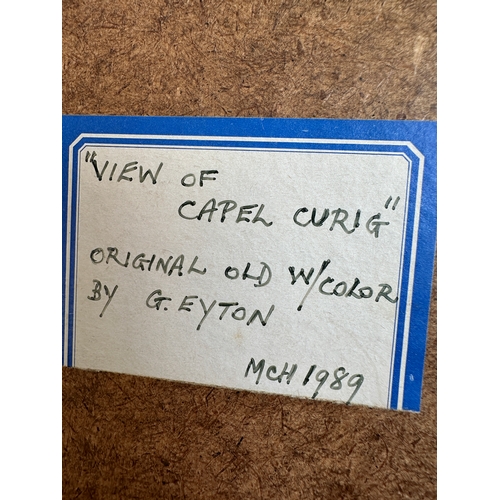 "VIEW OF
CAPEL CURIG"
ORIGINAL OLD W/COLOR
BY G. EYTON
McH 1989